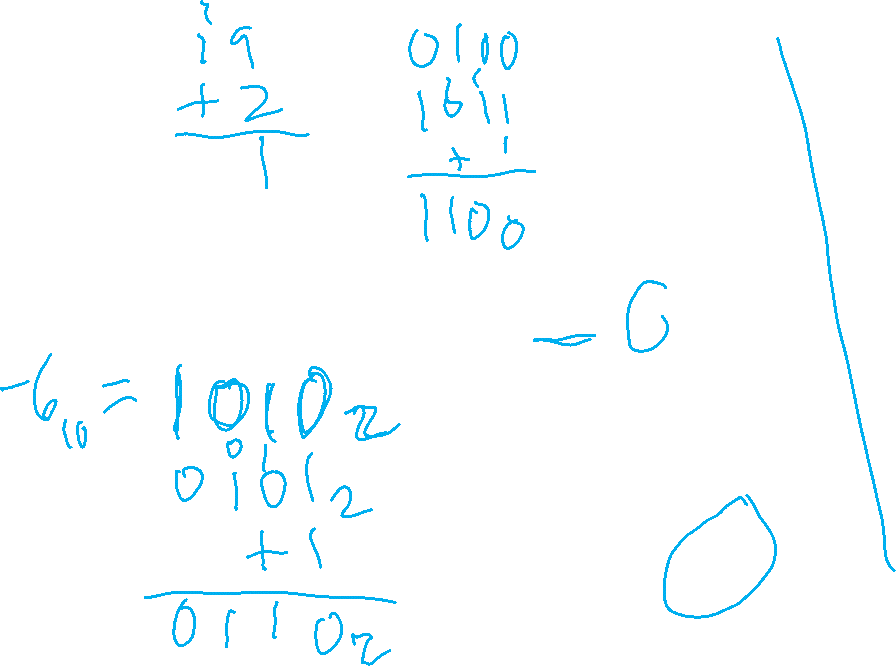 1
19
+2
1
0100
1
1011
+1
1100
-6₁₀ = 1010₂
0 1
0101₂
+1
0110₂